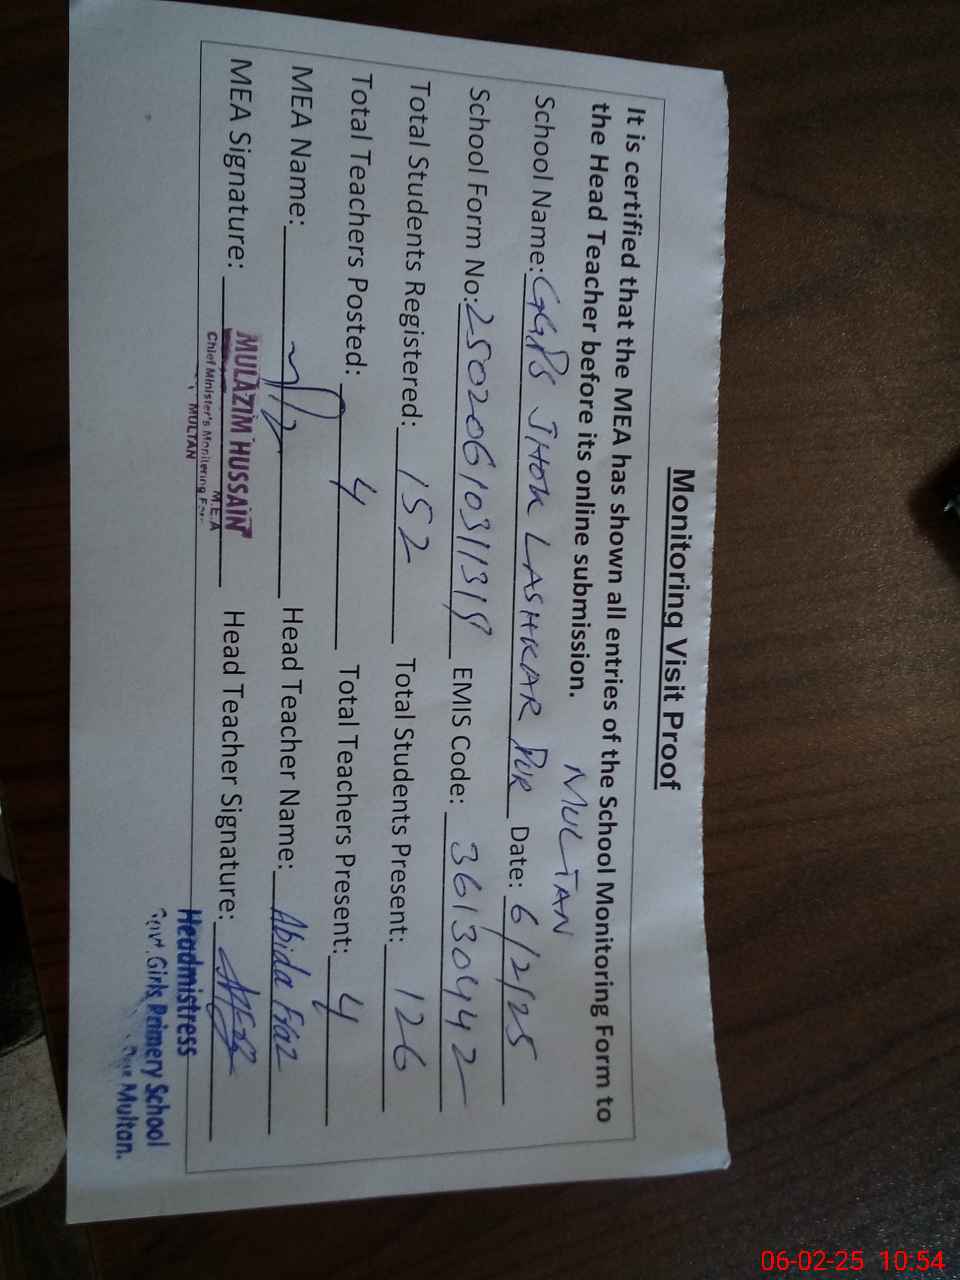 Monitoring Visit Proof
It is certified that the MEA has shown all entries of the School Monitoring Form to
the Head Teacher before its online submission.
MULTAN
School Name: GGPS JHOK LASHKAR PUR Date: 6/2/25
School Form No: 25020610311318 EMIS Code: 36130442
Total Students Registered: 152 Total Students Present: 126
Total Teachers Posted: 4 Total Teachers Present: 4
MEA Name: Head Teacher Name: Abida
MEA Signature: Head Teacher Signature:
MULAZIM HUSSAIN
M.E.A
Chief Minister's Monitering
MULTAN
Headmistress
Govt. Girls Primery School
Multan.
06-02-25 10:54